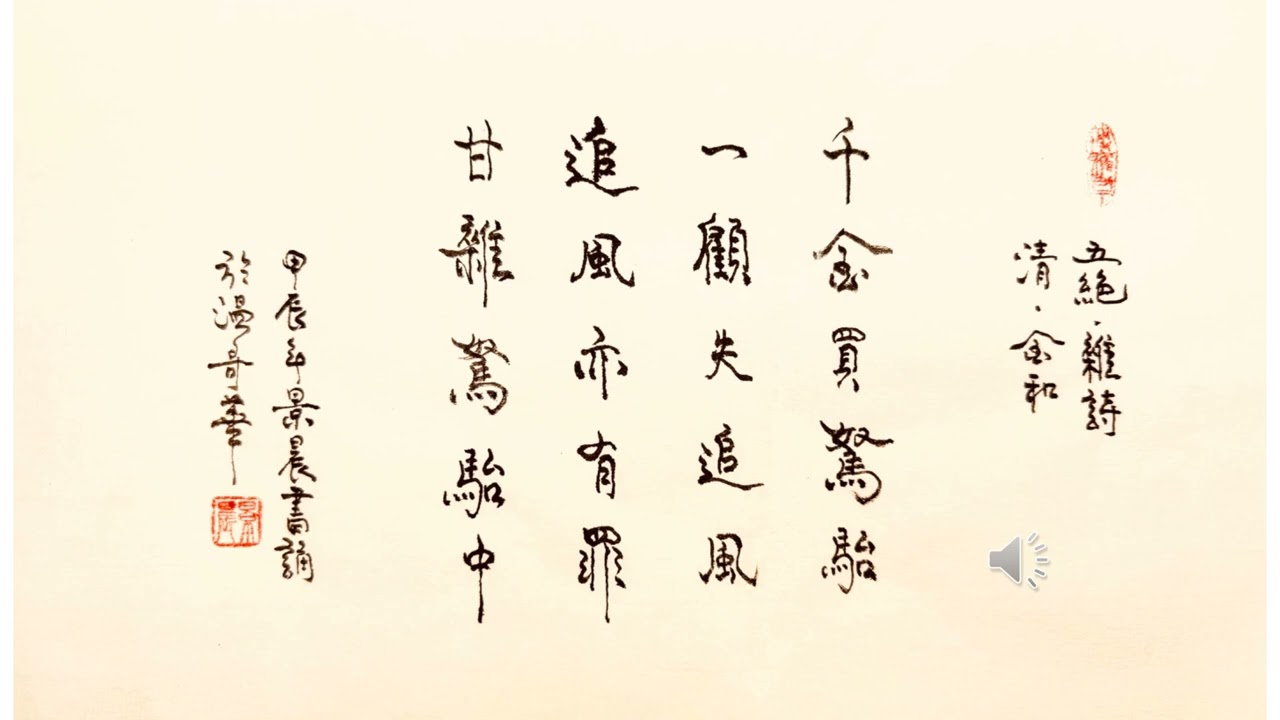 五絕·雜詩
清·金和
千金買駑駘
一顧失追風
追風亦有罪
甘雜駑駘中
甲辰年景晨書誦
於溫哥華
景晨